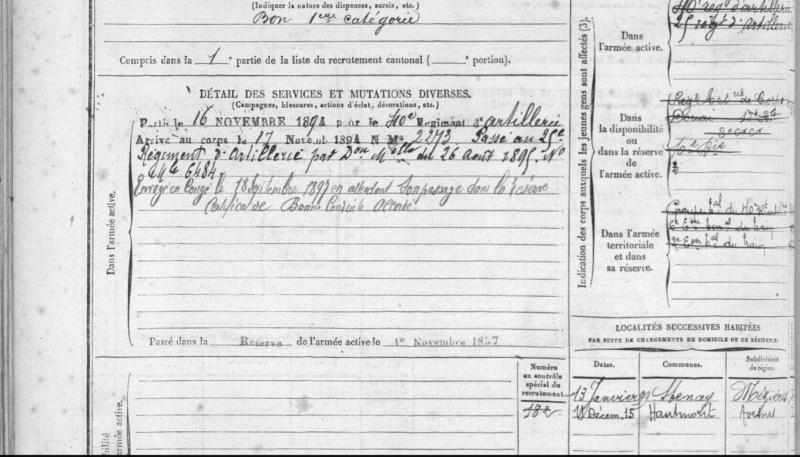 (Indiquer la nature des dispenses, sursis, etc.)
Bon 1ère catégorie
Compris dans la 1e partie de la liste du recrutement cantonal ( e portion).
DÉTAIL DES SERVICES ET MUTATIONS DIVERSES.
(Campagnes, blessures, actions d'éclat, décorations, etc.)
Parti le 16 NOVEMBRE 1894 pour le 40e Régiment d'artillerie
Arrivé au corps le 17 Novembre 1894 N Mle 2273 Passé au 25e
Régiment d'Artillerie par Don Mlle du 26 août 1895 No
Mle 6484
Envoyé en Congé le 18 Septembre 1897 en attendant son passage dans la réserve
Certificat de Bonne Conduite Accordé
Dans l'armée active.
Passé dans la Réserve de l'armée active le 1er Novembre 1897
Numéro
au contrôle
spécial du
recrutement.
armée active.
Indication des corps auxquels les jeunes gens sont affectés (3).
40e reg t d'artillerie
25 reg t d'Artillerie
Dans
l'armée active.
Dans
la disponibilité
ou dans la réserve
de l'armée active.
Dans l'armée
territoriale
et dans
sa réserve.
LOCALITÉS SUCCESSIVES HABITÉES
PAR SUITE DE CHANGEMENTS DE DOMICILE OU DE RÉSIDENCE.
Dates.
Communes.
Subdivision
de région.
13 Janvier Stenay Mézières
18 Décem. 15 Hautmont Avesnes